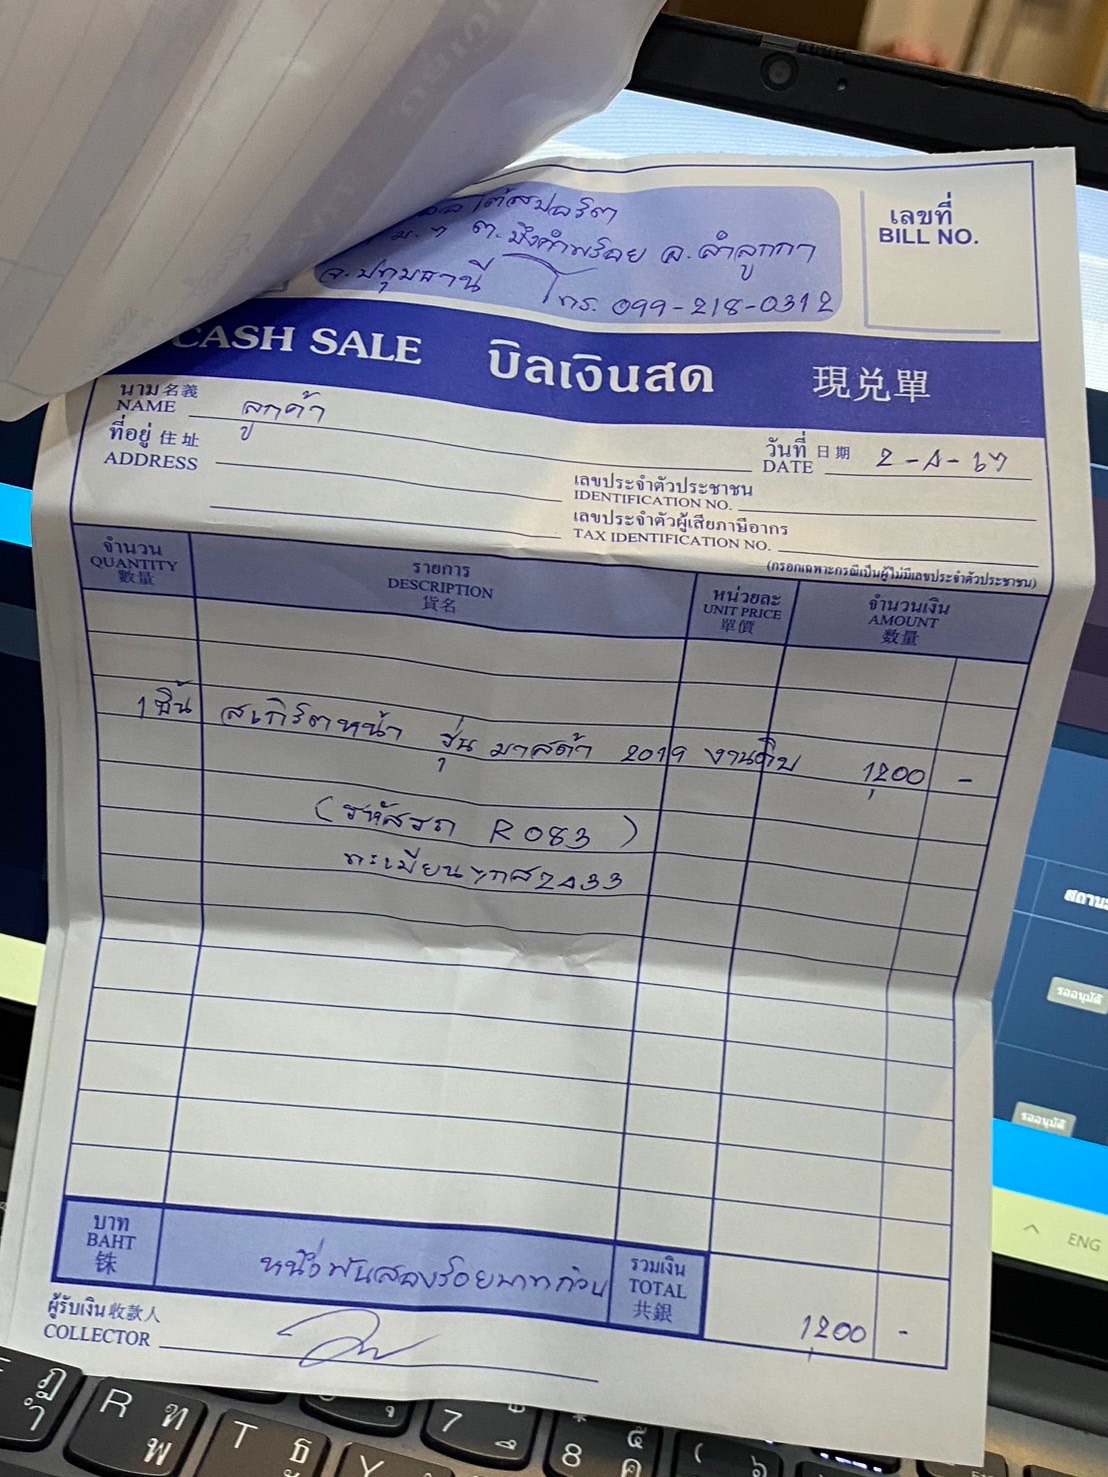 โต้สปอร์ต
ม.7 ต.บึงคำพร้อย อ.ลำลูกกา
จ.ปทุมธานี โทร. 099-218-0312
เลขที่
BILL NO.
CASH SALE บิลเงินสด 現兑單
นาม 名義
NAME ลูกค้า
ที่อยู่ 住址
ADDRESS
วันที่ 日期
DATE 2-4-67
เลขประจำตัวประชาชน
IDENTIFICATION NO.
เลขประจำตัวผู้เสียภาษีอากร
TAX IDENTIFICATION NO.
(กรอกเฉพาะกรณีเป็นผู้ไม่มีเลขประจำตัวประชาชน)
จำนวน
QUANTITY
數量
รายการ
DESCRIPTION
貨名
หน่วยละ
UNIT PRICE
單價
จำนวนเงิน
AMOUNT
数量
1 ชิ้น สเกิร์ตหน้า รุ่น มาสด้า 2019 งานดิบ 1,200 -
(รหัสรถ R083)
ทะเบียน 7กส2433
บาท
BAHT
铢
หนึ่งพันสองร้อยบาทถ้วน
รวมเงิน
TOTAL
共銀
1,200 -
ผู้รับเงิน 收款人
COLLECTOR
สถานะ
รออนุมัติ
รออนุมัติ
ENG
ฎ
ำ
R ฑ
พ
T ธ
ะ
Y
7
8 ๕
ค